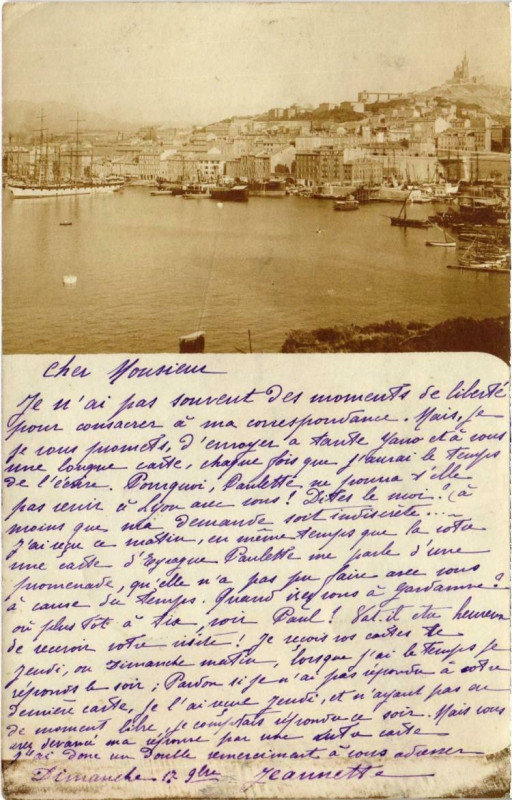 Cher Monsieur
Je n'ai pas souvent des moments de liberté
pour consacrer à ma correspondance. Mais, je
je vous promets, d'envoyer a tante et à vous
une longue carte, chaque fois que j'aurai le temps
de l'écrire. Pourquoi, Paulette ne pourra t'elle
pas venir à Lyon avec vous! Dites le moi. (à
moins que ma demande soit indiscrète....
J'ai reçu ce matin, en même temps que la votre
une carte d'Eyragues Paulette me parle d'une
promenade, qu'elle n'a pas pu faire avec vous
à cause du temps. Quand irez vous à Gardanne?
où plus tôt à voir Paul! Va-t-il être heureux
de recevoir votre visite! Je reçois vos cartes le
Jeudi, ou Dimanche matin, lorsque j'ai le temps je
réponds le soir; Pardon si je n'ai pas répondu à votre
dernière carte, je l'ai reçue Jeudi, et n'ayant pas eu
de moment libre, je comptais répondre ce soir. Mais vous
avez devancé ma réponse par une autre carte
j'ai donc un double remerciment à vous adresser
Dimanche 17 9bre Jeannette